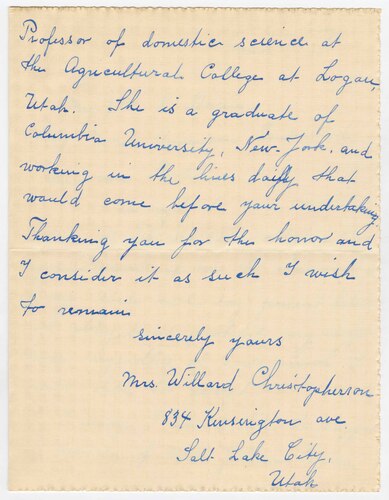 Professor of domestic science at
the Agricultural College at Logan,
Utah. She is a graduate of
Columbia University, New York, and
working in the lines daily that
would come before your undertaking
Thanking you for the honor and
I consider it as such I wish
to remain
sincerely yours
Mrs. Willard Christopherson
834 Kensington ave
Salt Lake City,
Utah